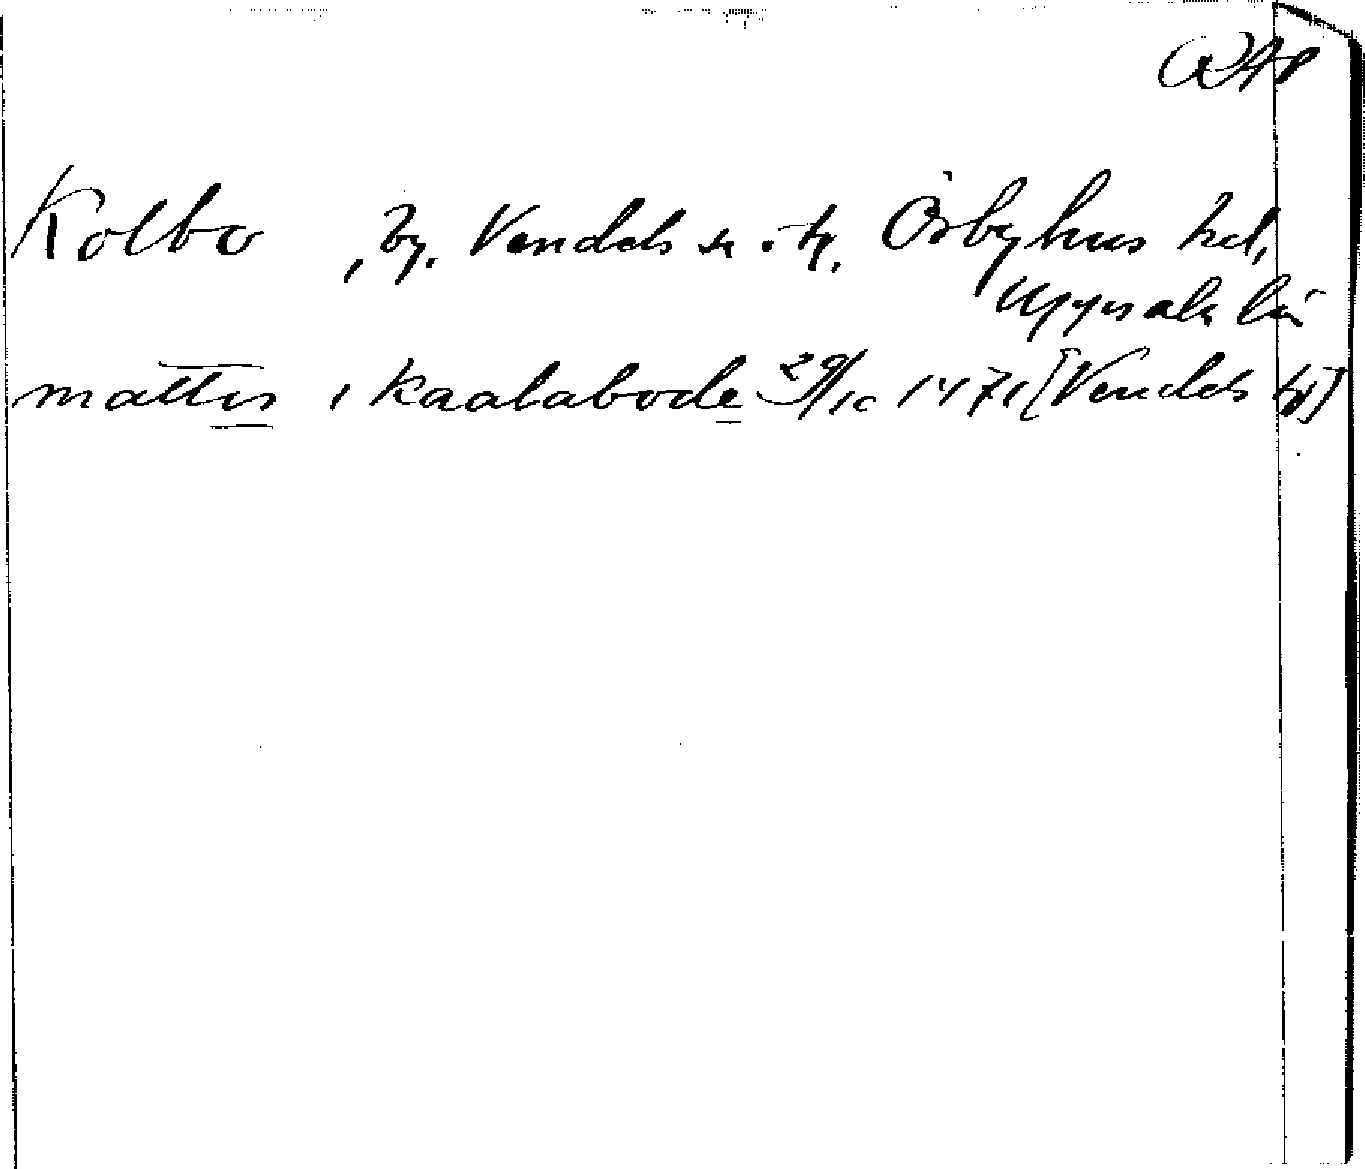 Kolbo , by. Vendels sn. o. tg. Örbyhus hd,
Uppsala län
mattis i kaalabode 29/10 1471 [Vendels tg]